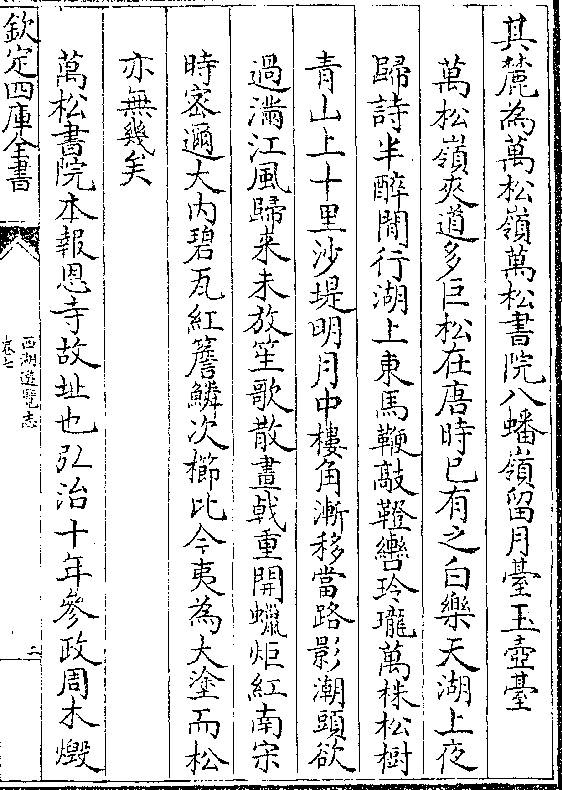 其麓為萬松嶺萬松書院八蟠嶺留月臺玉壺臺
萬松嶺夾道多巨松在唐時已有之白樂天湖上夜
歸詩半醉閒行湖上東馬鞭敲鞚轡玲瓏萬株松樹
青山上十里沙堤明月中樓角漸移當路影潮頭欲
過滿江風歸來未放笙歌散畫戟重開蠟炬紅南宋
時密邇大内碧瓦紅簷鱗次櫛比今夷為大塗而松
亦無幾矣
萬松書院本報恩寺故址也弘治十年參政周木燬
欽定四庫全書
西湖遊覽志
卷七
二